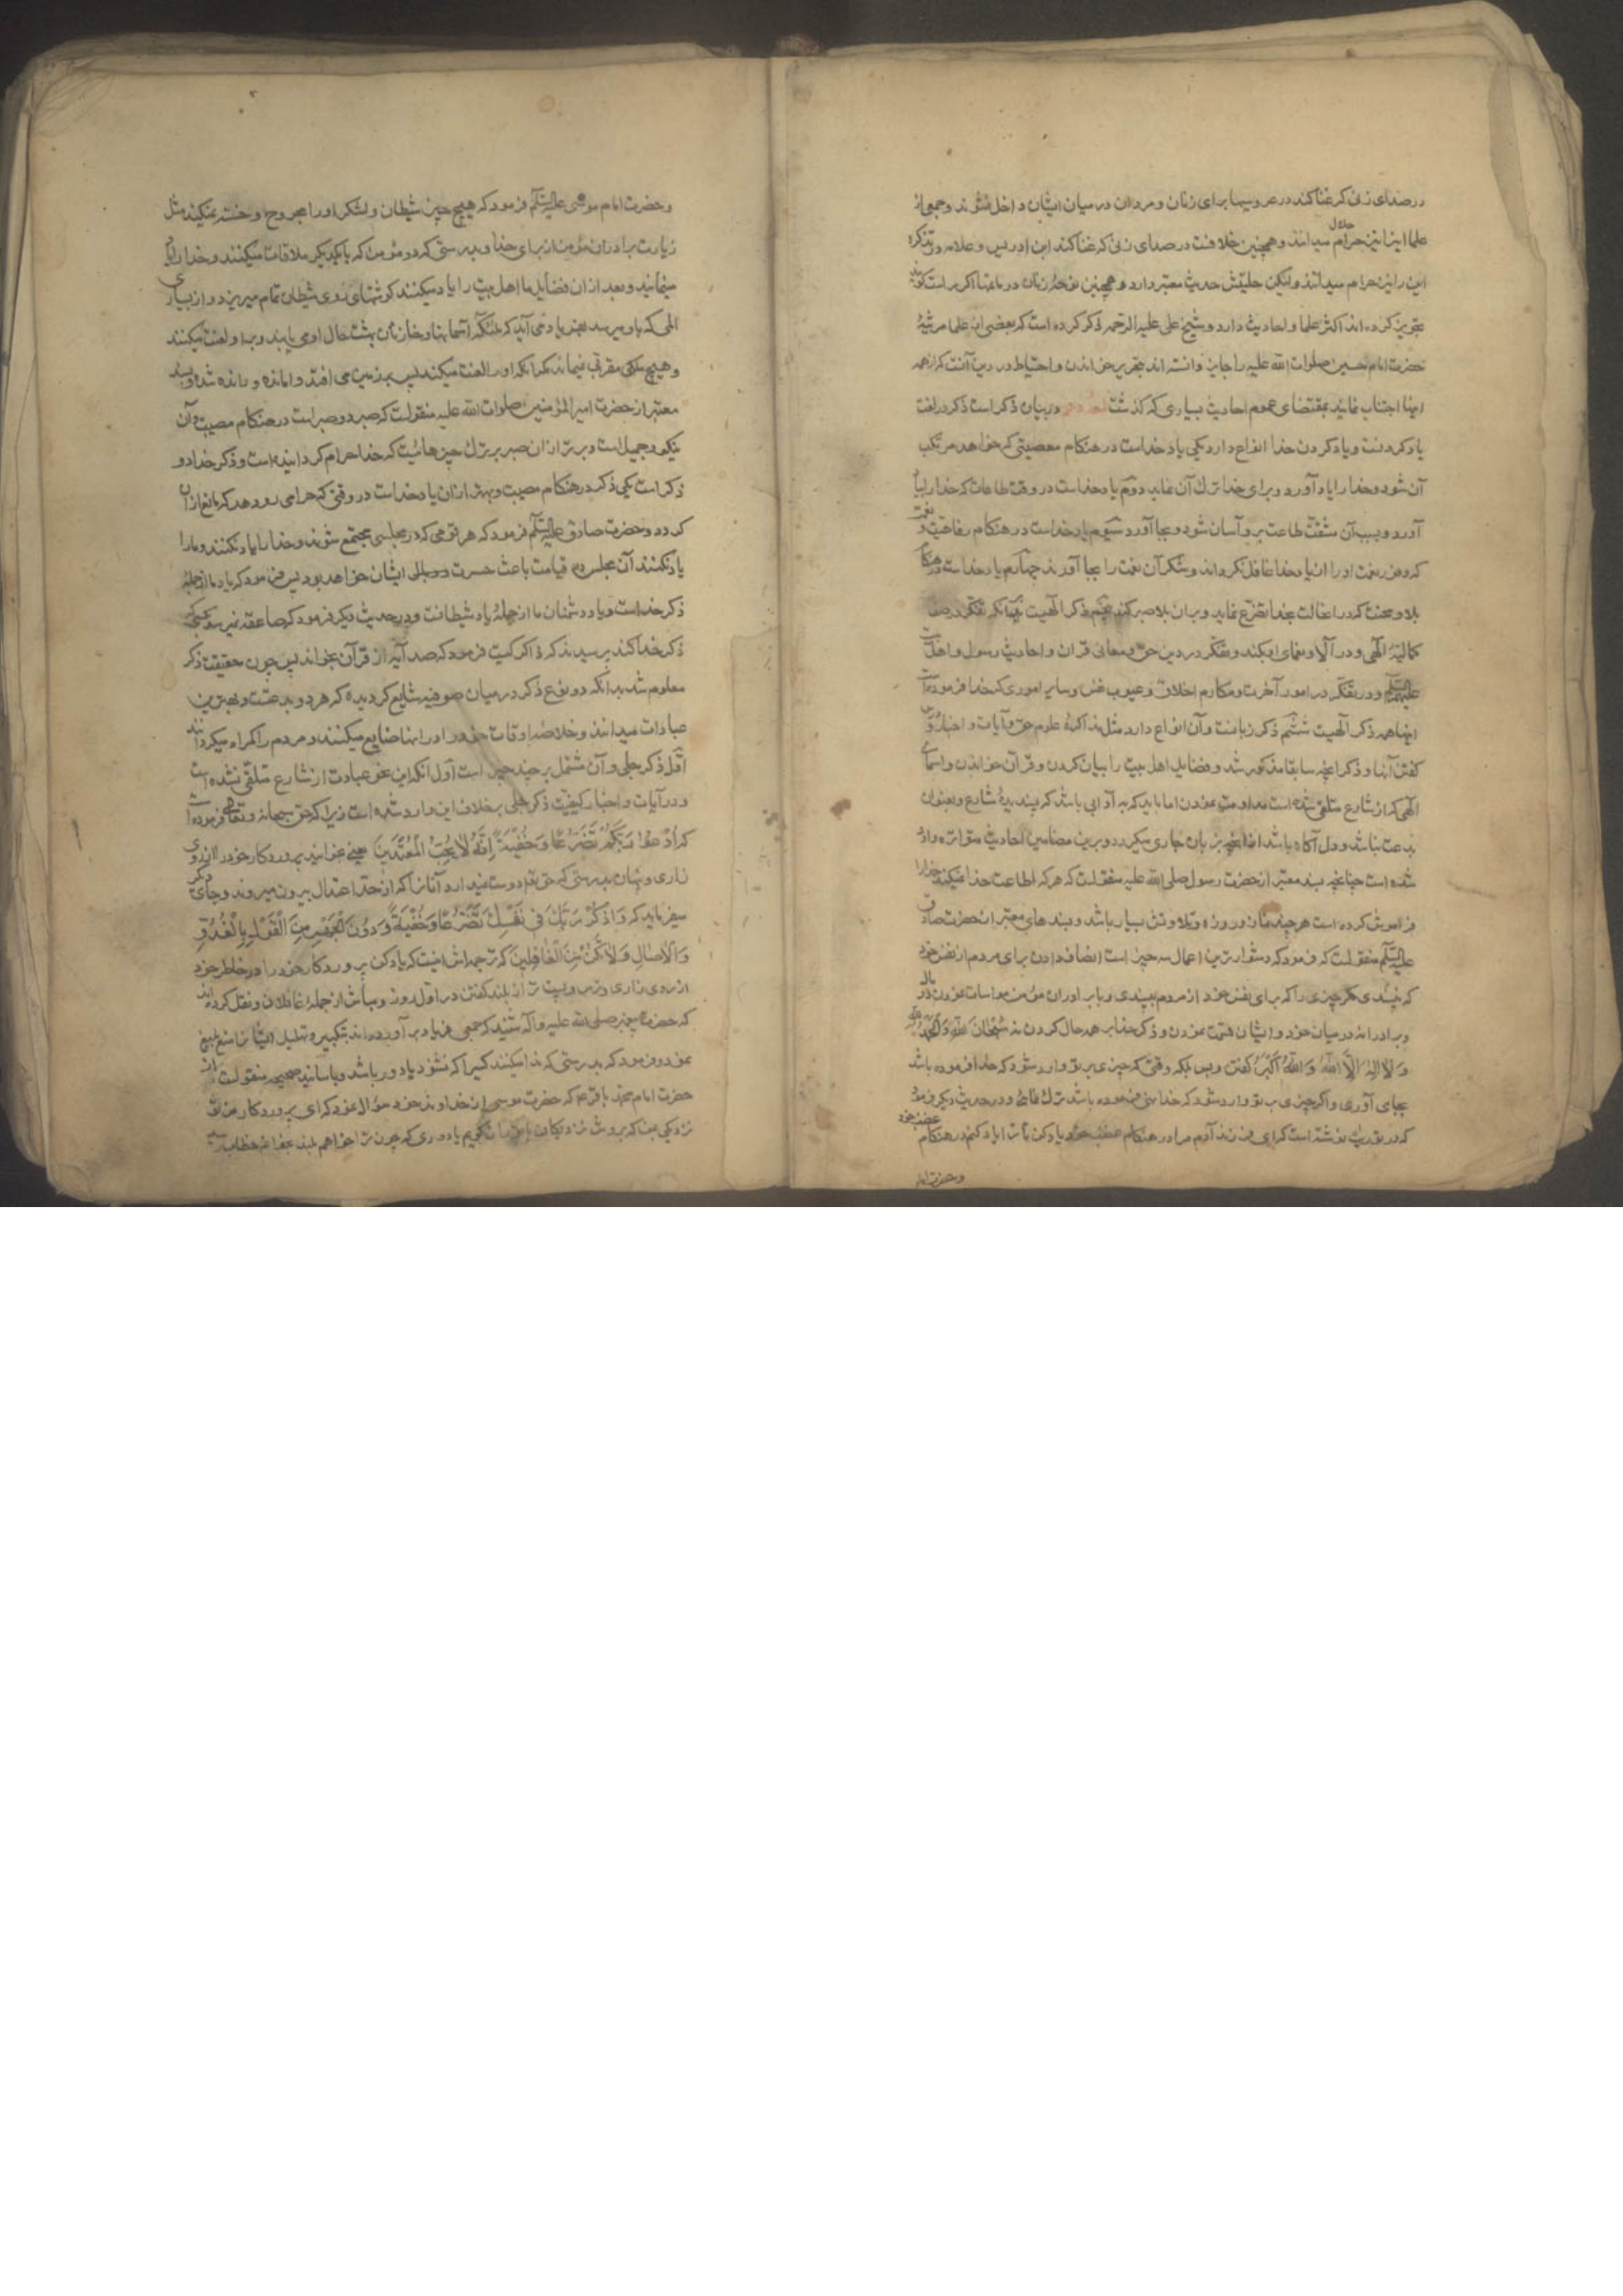 در صدای زنی که غنا کند در عروسیها برای زنان و مردان در میان ایشان داخل نشوند و جمعی از
علما این را نیز حرام میدانند و همچنین خلافست در صدای زنی که غنا کند ابن ادریس و علامه در تذکره
حلال
این را نیز حرام میدانند ولیکن حلیتش حدیث معتبر دارد و همچنین نوحهٔ زنان در ماتمها اکر براست کویند
تجویز کرده‌اند اکثر علما و احادیث دارد و شیخ علی علیه الرحمه ذکر کرده است که بعضی از علما مرثیهٔ
حضرت امام حسین صلوات الله علیه را جایز دانسته‌اند بتحریر خواندن و احتیاط در دین آنست که از همه
اینها اجتناب نمایند بمقتضای عموم احادیث بسیاری که کذشت در بیان ذکر است ذکر در لغت
یاد کردنست و یاد کردن خدا انواع دارد یکی یاد خداست در هنکام معصیتی که خواهد مرتکب
آن شود و خدا را یاد آورد و برای خدا ترک آن نماید دویم یاد خداست در وقت طاعات که خدا را بیاد
آورد و بسبب آن مشقت طاعت بر او آسان شود و بجا آورد سیوم یاد خداست در هنکام رفاهیت و نعمت
که وفور نعمت او را از یاد خدا غافل نکرداند و شکر آن نعمت را بجا آورند چهارم یاد خداست در هنکام
بلا و محنت که در آنحالت بخدا تضرع نماید و بر آن بلا صبر کند پنجم ذکر الهیست بآنکه تفکر در صفات
کمالیهٔ الهی و در آلا و نعمای او بکند و تفکر در دین حق و معانی قرآن و احادیث رسول و اهل بیت
علیهم السلام و در تفکر در امور آخرت و مکارم اخلاق و عیوب نفس و سایر اموری که خدا فرموده است
اینها همه ذکر الهیست ششم ذکر زبانست و آن انواع دارد مثل مذاکرهٔ علوم حق و آیات و اخبار و درس
کفتن آنها و ذکر آنچه سابقا مذکور شد و فضایل اهل بیت را بیان کردن و قرآن خواندن و اسمای
الهی که از شارع متلقی شده است مداومت نمودن اما باید که به آدابی باشد که پسندیدهٔ شارع و بعنوان
بدعت نباشد و دل آکاه باشد از آنچه بر زبان جاری میکردد و برین مضامین احادیث متواتره وارد
شده است چنانچه بسند معتبر از حضرت رسول صلی الله علیه منقولست که هر که اطاعت خدا میکند خدا را
فراموش نکرده است هر چند نماز و روزه و تلاوتش بسیار باشد و بسندهای معتبر از حضرت صادق
علیه السلام منقولست که فرمود که دشوارترین اعمال سه چیز است انصاف دادن برای مردم از نفس خود
که نپسندی مکر چیزی را که برای نفس خود از مردم بپسندی و با برادران مؤمن مواسات نمودن در مال
و برادرانه در میان خود و ایشان قسمت نمودن و ذکر خدا بر همه حال کردن نه سُبْحَانَ اللهِ وَ الْحَمْدُ لِلّهِ
وَ لَا اِلٰهَ اِلَّا اللهُ وَ اللهُ اَکْبَرُ کفتن و بس بلکه وقتی که چیزی بر تو وارد شود که خدا فرموده باشد
بجای آوری و اکر چیزی بر تو وارد شود که خدا نهی فرموده باشد ترک نمائی و در حدیث دیکر فرمود
که در توریة نوشته است که ای فرزند آدم مرا در هنکام غضب خود یاد کن تا ترا یاد کنم در هنکام غضب خود
و حضرت امام
و حضرت امام موسی علیه السلام فرمود که هیچ چیز شیطان و لشکر او را مجروح و خسته نمیکند مثل
زیارت برادران مؤمن از برای خدا و بدرستی که دو مؤمن که با یکدیکر ملاقات میکنند و خدا را یاد
مینمایند و بعد از آن فضایل ما اهل بیت را یاد میکنند کوشتهای روی شیطان تمام میریزد و از بسیاری
المی که باو میرسد بفریاد می آید که ملائکه آسمانها و خازنان بهشت حال او می یابند و بر او لعنت میکنند
و هیچ ملک مقربی نمیماند مکر آنکه او را لعنت میکند پس بر زمین می افتد وامانده و رانده شده و بسند
معتبر از حضرت امیر المؤمنین صلوات الله علیه منقولست که صبر دو صبر است در هنکام مصیبت و آن
نیکو و جمیل است و بهتر از آن صبر بر ترک چیزهائیست که خدا حرام کردانیده است و ذکر خدا دو
ذکر است یکی ذکر در هنکام مصیبت و بهتر از آن یاد خداست در وقتی که حرامی رو دهد که مانع از آن
کردد و حضرت صادق علیه السلام فرمود که هر قومی که در مجلسی مجتمع شوند و خدا را یاد نکنند و ما را
یاد نکنند آن مجلس در قیامت باعث حسرت و وبال ایشان خواهد بود پس فرمود که یاد ما از جملهٔ
ذکر خداست و یاد دشمنان ما از جملهٔ یاد شیطانست و در حدیث دیکر فرمود که صاعقه نمیرسد بکسی که
ذکر خدا کند پرسیدند که ذاکر کیست فرمود که صد آیه از قرآن بخواند پس چون حقیقت ذکر
معلوم شد بدانکه دو نوع ذکر در میان صوفیه شایع کردیده که هر دو بدعتست و بهترین
عبادات میدانند و خلاصهٔ اوقات خود را در اینها ضایع میکنند و مردم را کمراه میکردانند
اوّل ذکر جلی و آن مشتمل بر چند چیز است اوّل آنکه این نحو عبادت از شارع متلقی نشده است
و در آیات و اخبار کیفیت ذکر جلی بخلاف این وارد شده است زیرا که حق سبحانه و تعالی فرموده است
که اُدْعُوا رَبَّکُمْ تَضَرُّعًا وَ خُفْیَةً اِنَّهُ لَا یُحِبُّ الْمُعْتَدِینَ یعنی بخوانید پروردکار خود را از روی
زاری و پنهان بدرستی که حق تعالی دوست نمیدارد آنان را که از حد اعتدال بیرون میروند و جای دیکر
میفرماید که وَ اذْکُرْ رَبَّکَ فِی نَفْسِکَ تَضَرُّعًا وَ خُفْیَةً وَ دُونَ الْجَهْرِ مِنَ الْقَوْلِ بِالْغُدُوِّ
وَ الْاٰصَالِ وَ لَا تَکُنْ مِنَ الْغَافِلِینَ که ترجمه‌اش اینست که یاد کن پروردکار خود را در خاطر خود
از روی زاری و ترس و پست تر از بلند کفتن در اوّل روز و مباش از جملهٔ غافلان و نقل کرده‌اند
که حضرت پیغمبر صلی الله علیه و آله شنید که جمعی فریاد بر آورده‌اند بتکبیر و تهلیل ایشان را منع بلیغ
نمود و فرمود که بدرستی که ندا میکنید کسی را که نشنود یا دور باشد و باسانید صحیحه منقولست از
حضرت امام محمد باقر که حضرت موسی از خداوند خود سؤال نمود که ای پروردکار من تو
نزدیکی بمن که بروش نزدیکان با تو راز کویم یا دوری که چون ترا خواهم بلند بخوانم خطاب رسید